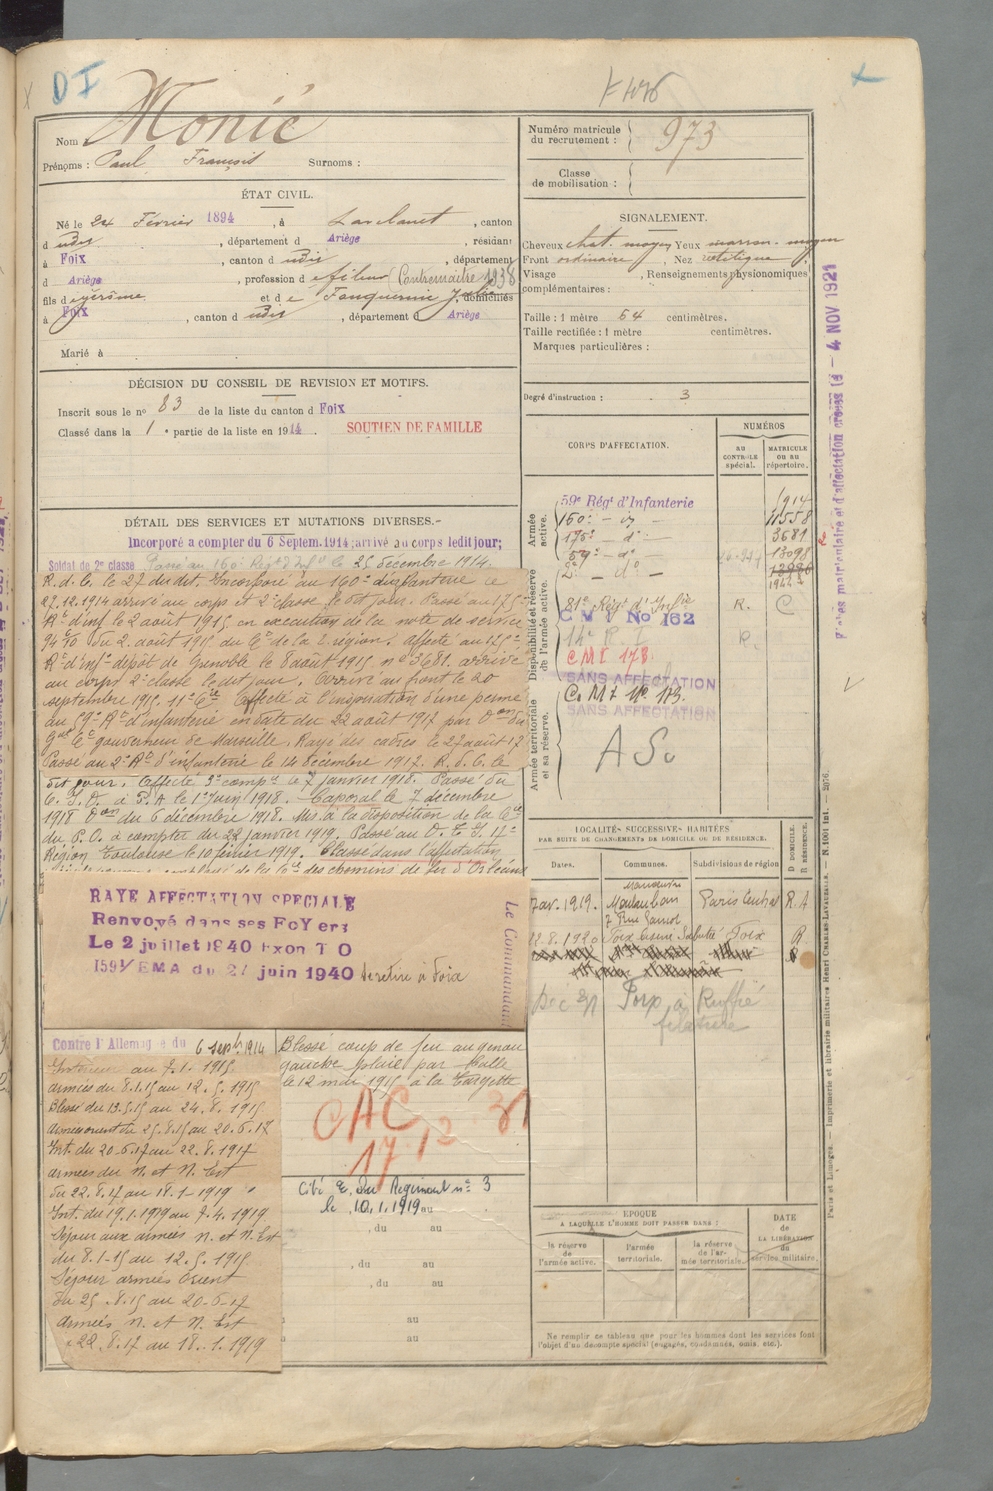 D I
Nom : Monié
Prénoms : Paul François Surnoms :
ÉTAT CIVIL.
Né le 24 Février 1894, à Lavelanet, canton
d udit, département d Ariège, résidant
à Foix, canton d udit, département
d Ariège, profession de fileur Contremaître 1938
fils de Jérôme et de Fonquernie Julie, domiciliés
à Foix, canton d udit, département d Ariège
Marié à
DÉCISION DU CONSEIL DE REVISION ET MOTIFS.
Inscrit sous le no 83 de la liste du canton d Foix
Classé dans la 1e partie de la liste en 1914. SOUTIEN DE FAMILLE
DÉTAIL DES SERVICES ET MUTATIONS DIVERSES.-
Incorporé a compter du 6 Septem.1914;arrivé au corps ledit jour;
Soldat de 2e classe Passé au 160e Régt d'Infie le 25 décembre 1914.
R.d.C. le 27 du dit. Incorporé au 160e d'infanterie le
27.12.1914 arrivé au corps et 2e classe le dit jour. Passé au 175e
Rt d'inf le 2 août 1915 en exécution de la note de service
du 2 août 1915 du Gal de la région. affecté au 175e
Rt d'infie dépôt de Grenoble le 8 août 1915 no 3681. arrivé
au corps 2e classe le dit jour. Arrivé au front le 20
septembre 1915. 11e Cie Affecté à l'expiration d'une perme
au 59e Rt d'infanterie en date du 22 août 1917 par Oon du
Gal Ct gouverneur de Marseille. Rayé des cadres le 27 août 17
Passé au 2e Rt d'infanterie le 14 décembre 1917. R.d.C. le
dit jour. Affecté 3e compie le 7 janvier 1918. Passé du
C.I.D. à 5.A le 1er juin 1918. Caporal le 7 décembre
1918 Oon du 6 décembre 1918. Mis à la disposition de la Cie
du P.O. à compter du 22 janvier 1919. Passé au O. T. I. 17e
Région Toulouse le 10 février 1919. Classé dans l'affectation
des chemins de fer d'Orléans
RAYE AFFECTATION SPECIALE
Renvoyé dans ses FoYers
Le 2 juillet 1940 Exon T O
159/EMA du 27 juin 1940 se retire à Foix
Le Commandant
Contre l'Allemagne du 6 septbre 1914
Intérieur au 7.1.1915
armées du 8.1.15 au 12.5.1915
Blessé du 13.5.15 au 24.8.1915
Armée orient du 25.8.15 au 20.6.17
Int. du 20.6.17 au 22.8.1917
armées du N. et N. Est
du 22.8.17 au 18.1.1919
Int. du 19.1.1919 au 7.4.1919
Séjour aux armées N. et N. Est
du 8.1.15 au 12.5.1915.
Séjour armées Orient
du 25.8.15 au 20.6.17
Armées N. et N. Est
22.8.17 au 18.1.1919
Blessé coup de feu au genou
gauche par balle
le 12 mai 1915 à la Targette
CAC
17.12.31
Cité O. du Régiment no 3
le 10.1.1919 au
, du au
, du au
, du au
au
au
Numéro matricule
du recrutement : 973
Classe
de mobilisation :
SIGNALEMENT.
Cheveux chat. moyen Yeux marron moyen
Front ordinaire, Nez rectiligne
Visage, Renseignements physionomiques
complémentaires :
Taille : 1 mètre 64 centimètres.
Taille rectifiée : 1 mètre centimètres.
Marques particulières :
Degré d'instruction : 3
CORPS D'AFFECTATION.
NUMÉROS
AU CONTRÔLE spécial.
MATRICULE OU AU répertoire.
Armée active.
Disponibilité et réserve de l'armée active.
Armée territoriale et sa réserve.
59e Régt d'Infanterie 1914
160e - d° - 11558
175e - d° - 3681
59e - d° 13098
2e - d° -
81e Régt d'Infie R. C
C M I No 162
14e R. I R.
CMI 173.
SANS AFFECTATION
C. M I No 173.
SANS AFFECTATION
A S.
LOCALITÉS SUCCESSIVES HABITÉES
PAR SUITE DE CHANGEMENTS DE DOMICILE OU DE RÉSIDENCE.
Dates. Communes. Subdivisions de région D DOMICILE. R RÉSIDENCE.
7 av. 1919. Montauban Paris Central R A
12.8.1920 Foix Foix R
Dec Forp à Ruffié
filature
ÉPOQUE
A LAQUELLE L'HOMME DOIT PASSER DANS :
la réserve de l'armée active.
l'armée territoriale.
la réserve de l'armée territoriale.
DATE DE LA LIBÉRATION du service militaire.
Ne remplir ce tableau que pour les hommes dont les services font
l'objet d'un décompte spécial (engagés, condamnés, omis, etc.).
Plaques matriculaire et d'affectation créées le - 4 NOV 1921
Paris et Limoges. — Imprimerie et librairie militaires Henri CHARLES-LAVAUZELLE. — N. 1001 Int.